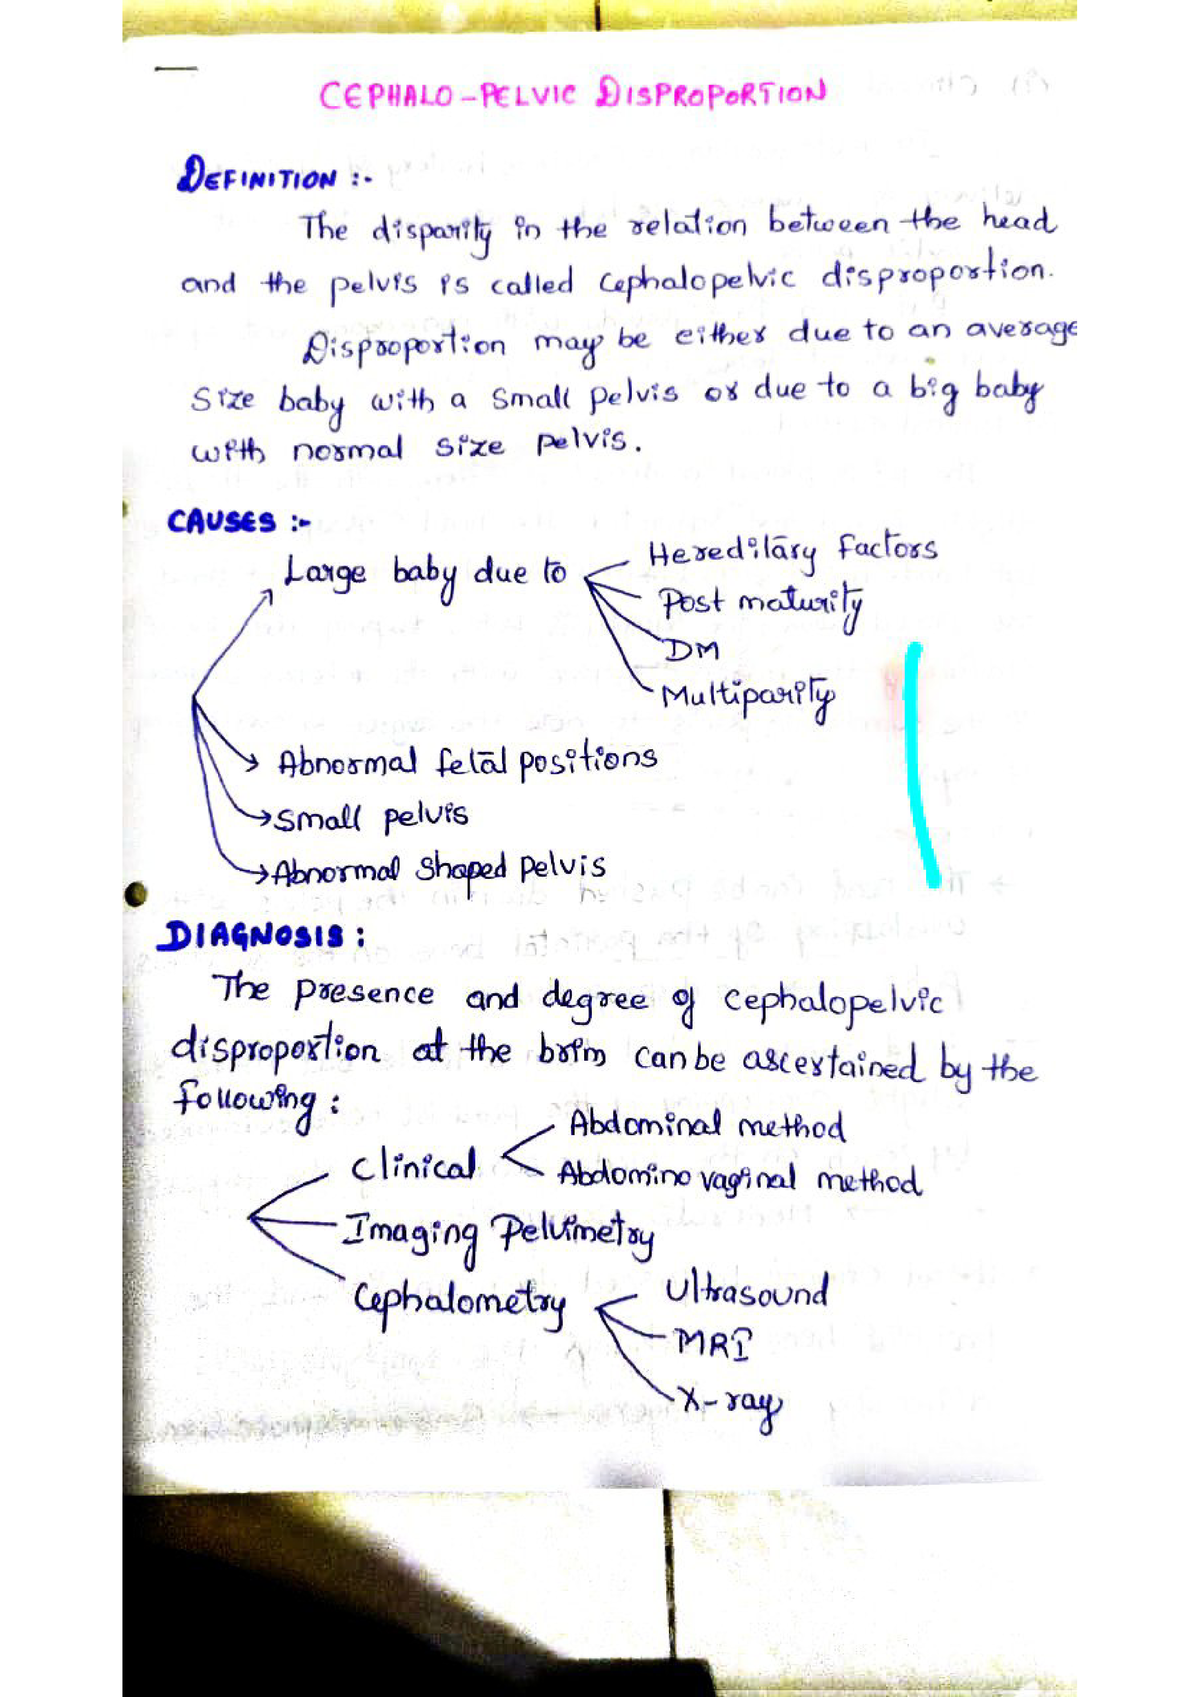 CEPHALO-PELVIC DISPROPORTION
DEFINITION :-
The disparity in the relation between the head
and the pelvis is called cephalopelvic disproportion.
Disproportion may be either due to an average
size baby with a small pelvis or due to a big baby
with normal size pelvis.
CAUSES :-
Large baby due to
Hereditary factors
Post maturity
DM
Multiparity
Abnormal fetal positions
Small pelvis
Abnormal shaped pelvis
DIAGNOSIS :
The presence and degree of cephalopelvic
disproportion at the brim can be ascertained by the
following :
Clinical
Abdominal method
Abdomino vaginal method
Imaging Pelvimetry
Cephalometry
Ultrasound
MRI
X-ray